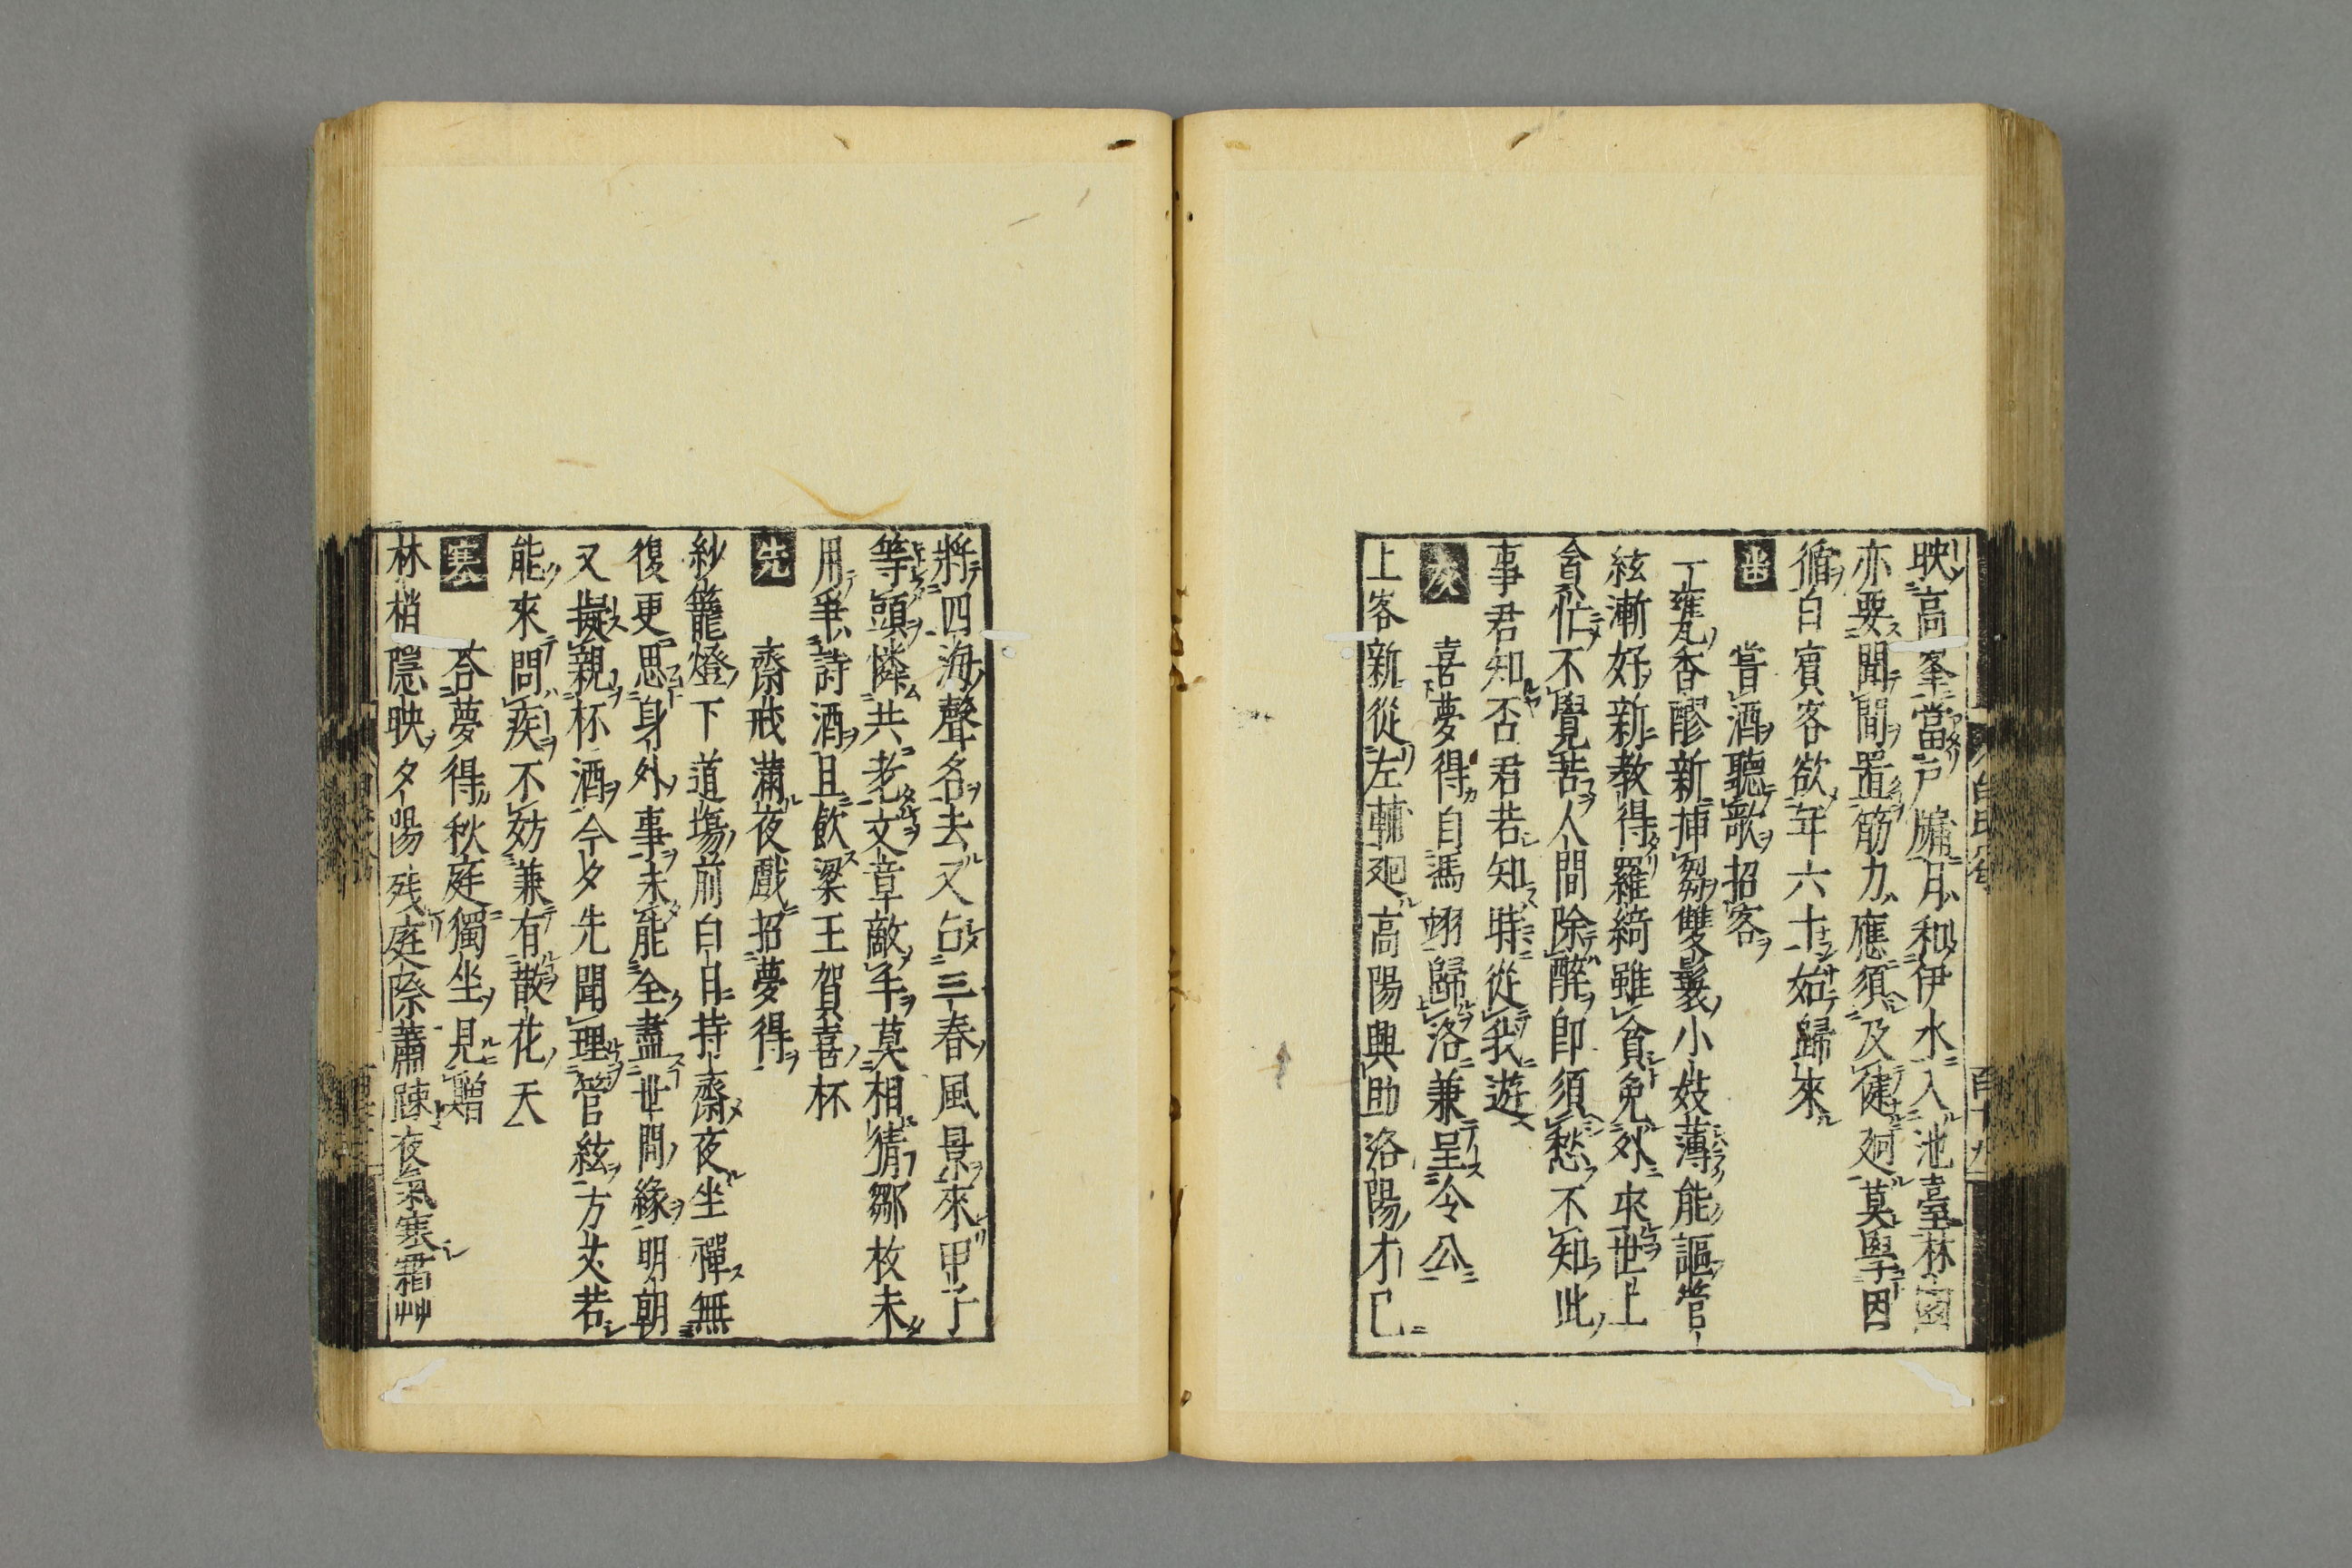 映高峯當戸牖月和伊水入池臺林園
亦要聞閒置筋力應須及健廻莫學因
循白賓客欲年六十始歸來
嘗酒聽歌招客
一甕香醪新插芻雙鬟小妓薄能謳管
絃漸好新教得羅綺雖貧免外求世上
貪忙不覺苦人間除醉即須愁不知此
事君知否君若知時從我遊
灰 喜夢得自馮翊歸洛兼呈令公
上客新從左輔廻高陽興助洛陽才已
將四海聲名去又占三春風景來甲子
等頭憐共老文章敵手莫相猜鄒枚未
用爭詩酒且飲梁王賀喜杯
先 齋戒滿夜戲招夢得
紗籠燈下道塲前白日持齋夜坐禪無
復更思身外事未能全盡世間緣明朝
又擬親杯酒今夕先聞理管絃方丈若
能來問疾不妨兼有散花天
寒 答夢得秋庭獨坐見贈
林梢隱映夕陽残庭際蕭踈夜氣寒霜艸